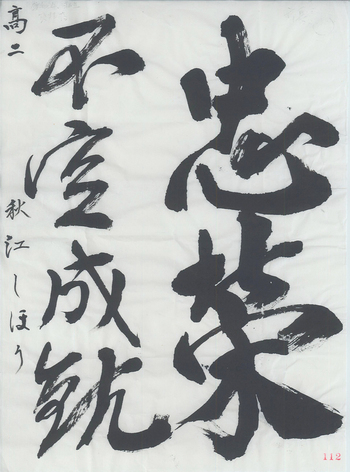 忠栄
不空成就
高二 秋江しほり
112